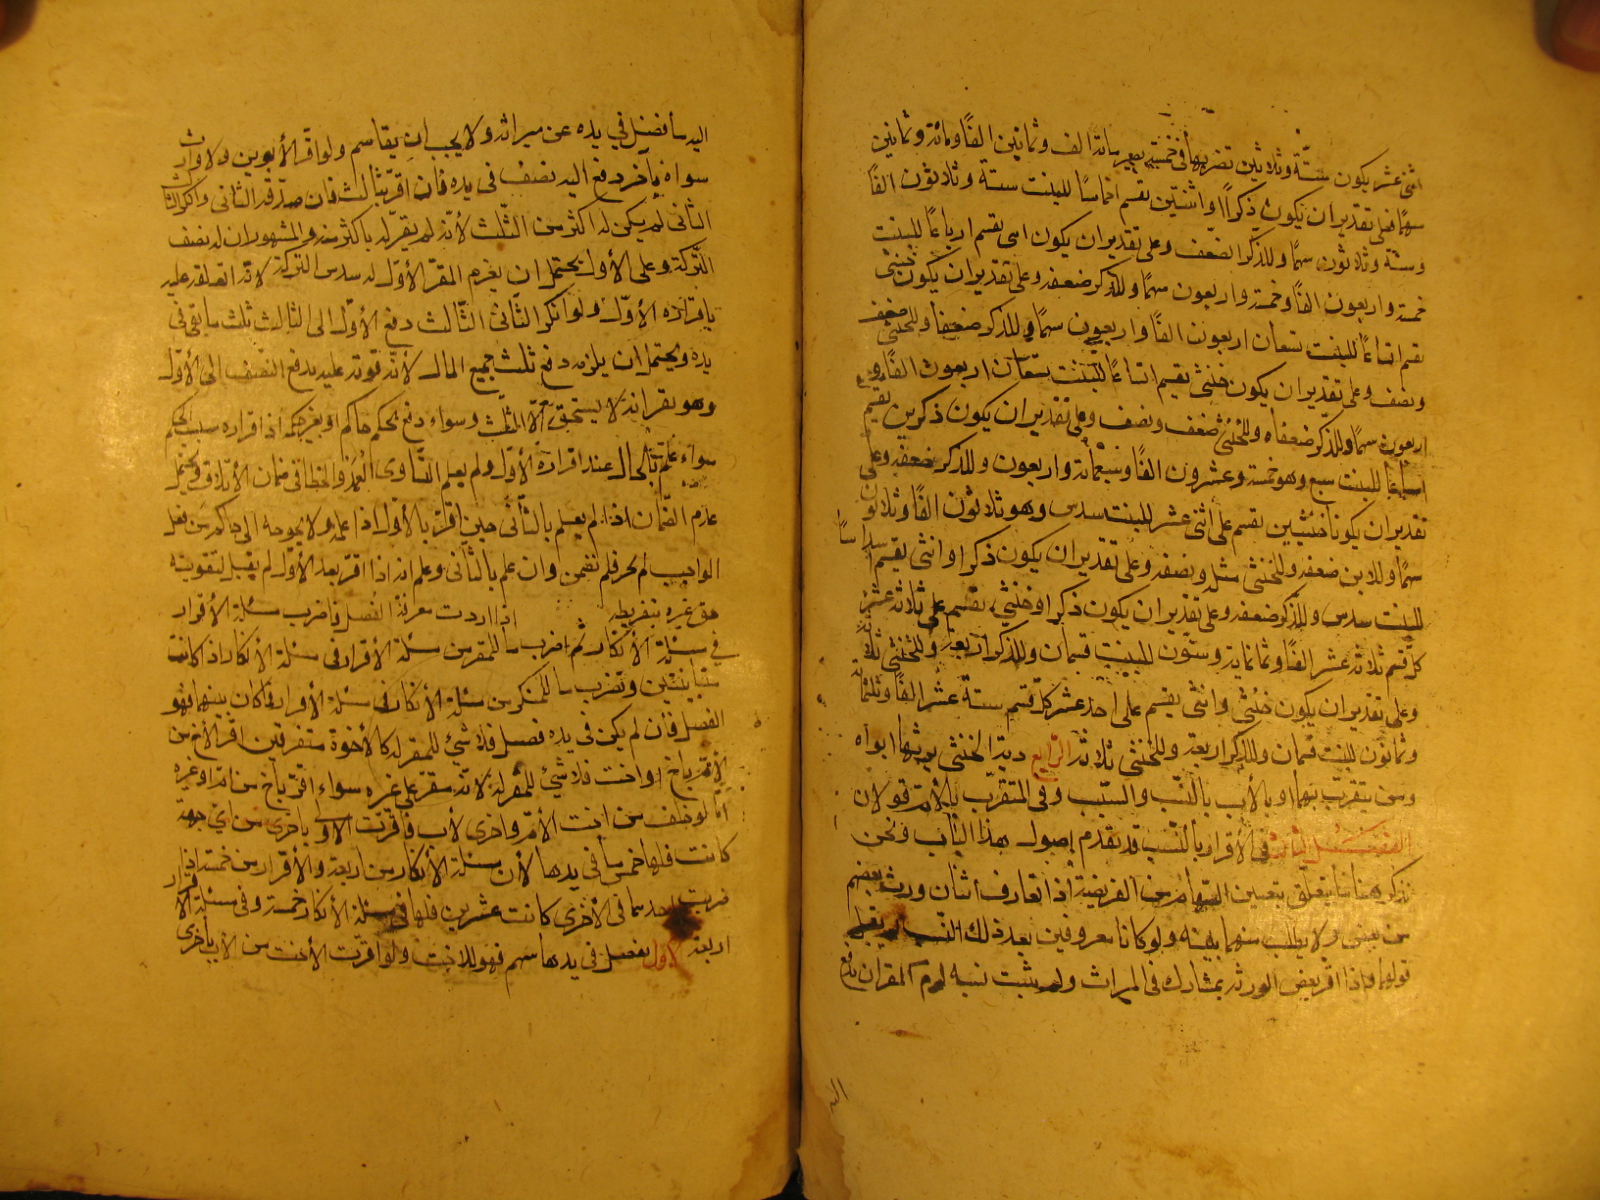 اثنى عشر يكون ستة وثلاثين تضربها فى خمسة يصير مائة الف وثمانين الفا ومائة وثمانين
سهما فعلى تقدير ان يكون ذكرا او انثيين تقسم اخماسا للبنت ستة وثلاثون الفا
وستة وثلاثون سهما وللذكر الضعف وعلى تقدير ان يكون انثى تقسم ارباعا للبنت
خمسة واربعون الفا وخمسة واربعون سهما وللذكر ضعفه وعلى تقدير ان يكون خنثى
تقسم اتساعا للبنت تسعان اربعون الفا واربعون سهما وللذكر ضعفها وللخنثى ضعف
ونصف وعلى تقدير ان يكون خنثى تقسم اتساعا للبنت تسعان اربعون الفا و
اربعون سهما وللذكر ضعفاه وللخنثى ضعف ونصف وعلى تقدير ان يكون ذكرين تقسم
اسباعا للبنت سبع وهو خمسة وعشرون الفا وسبعمائة واربعون وللذكر ضعفه وعلى
تقدير ان يكونا خنثيين تقسم على اثنى عشر للبنت سدس وهو ثلاثون الفا وثلاثون
سهما وللابن ضعفه وللخنثى مثل ونصفه وعلى تقدير ان يكون ذكرا وانثى تقسم اسداسا
للبنت سدس وللذكر ضعفه وعلى تقدير ان يكون ذكرا وخنثى تقسم على ثلاثة عشر
كل قسم ثلاثة عشر الفا وثمانمائة وستون للبنت قسمان وللذكر اربعة وللخنثى ثلاثة
وعلى تقدير ان يكون خنثى وانثى يقسم على احد عشر كل قسم ستة عشر الفا وثلثمائة
وثمانون للبنت قسمان وللذكر اربعة وللخنثى ثلاثة الرابع دية الخنثى يرثها ابواه
ومن يتقرب بهما او بالأب بالنسب والسبب وفى المتقرب بالأم قولان
الفصل الثالث فى الأقرار بالنسب قد تقدم اصول هذا الباب ونحن
نذكر هنا ما يتعلق بتعيين السهام من الفريضة اذا تعارف اثنان ورث بعضهم
من بعض ولا يطلب منهما بينة ولو كانا معروفين بعد ذلك النسب لم يقبل
قولهما واذا اقر بعض الورثة بمشارك فى الميراث ولم يثبت نسبه لزم المقر ان يدفع
اليه
اليه ما فضل فى يده عن ميراثه ولا يجب ان يقاسم ولو اقر الأبوين ولا وارث
سواه بآخر دفع اليه نصف فى يده فان اقر بثالث فان صدقه الثانى وانكر الثالث
الثانى لم يكن له اكثر من الثلث لأنه لم يقر له باكثر منه والمشهور ان له نصف
التركة وعلى الأول يحتمل ان يغرم المقر الأول له سدس التركة لأنه اتلفه عليه
باقراره الأول ولو انكر الثانى الثالث دفع الأول الى الثالث ثلث ما بقى فى
يده ويحتمل ان يلزمه دفع ثلث جميع المال لأنه فوته عليه بدفع النصف الى الأول
وهو يقر انه لا يستحق الا الثلث وسواء دفع بحكم حاكم او بغير حكمه اذ اقراره سبب الحكم
سواء علم بالحال عند اقراره الأول ولم يعلم لتساوى العمد والخطا فى ضمان الأتلاف ويحتمل
عدم الضمان اذا لم يعلم بالثانى حين اقر بالأول اذا علمه ولا يحوجه الى حاكم من فعل
الواجب لم يحر فلم تضمن وان علم بالثانى وعلم انه اذا اقر بعد الأول لم يقبل لتفويته
حق غيره بتفريطه اذا اردت معرفة الفضل فاضرب مسئلة الأقرار
فى مسئلة الأنكار ثم اضرب ما للمقر من مسئلة الأقرار فى مسئلة الأنكار اذا كانت
متباينتين وتضرب ما للمنكر من مسئلة الأنكار فى مسئلة الأقرار فما كان بينهما فهو
الفضل فان لم يكن فى يده فضل فلا شئ للمقر له كالأخوة متفرقين اقر الأخ من
الأم باخ او اخت فلا شئ للمقر له لأنه مقر على غيره سواء اقر باخ من امه او غيره
اما لو خلف من اخت الأم واخرى لأب فاقرت الأولى باخرى من اى جهة
كانت فلها خمس ما فى يدها لأن مسئلة الأنكار من اربعة والأقرار من خمسة اذا
ضربت احدهما فى الأخرى كانت عشرين فلها فى مسئلة الأنكار خمسة وفى مسئلة الاقرار
اربعة الاول يفضل فى يدها سهم فهو للاخت ولو اقرت الأخت من الأب باخرى